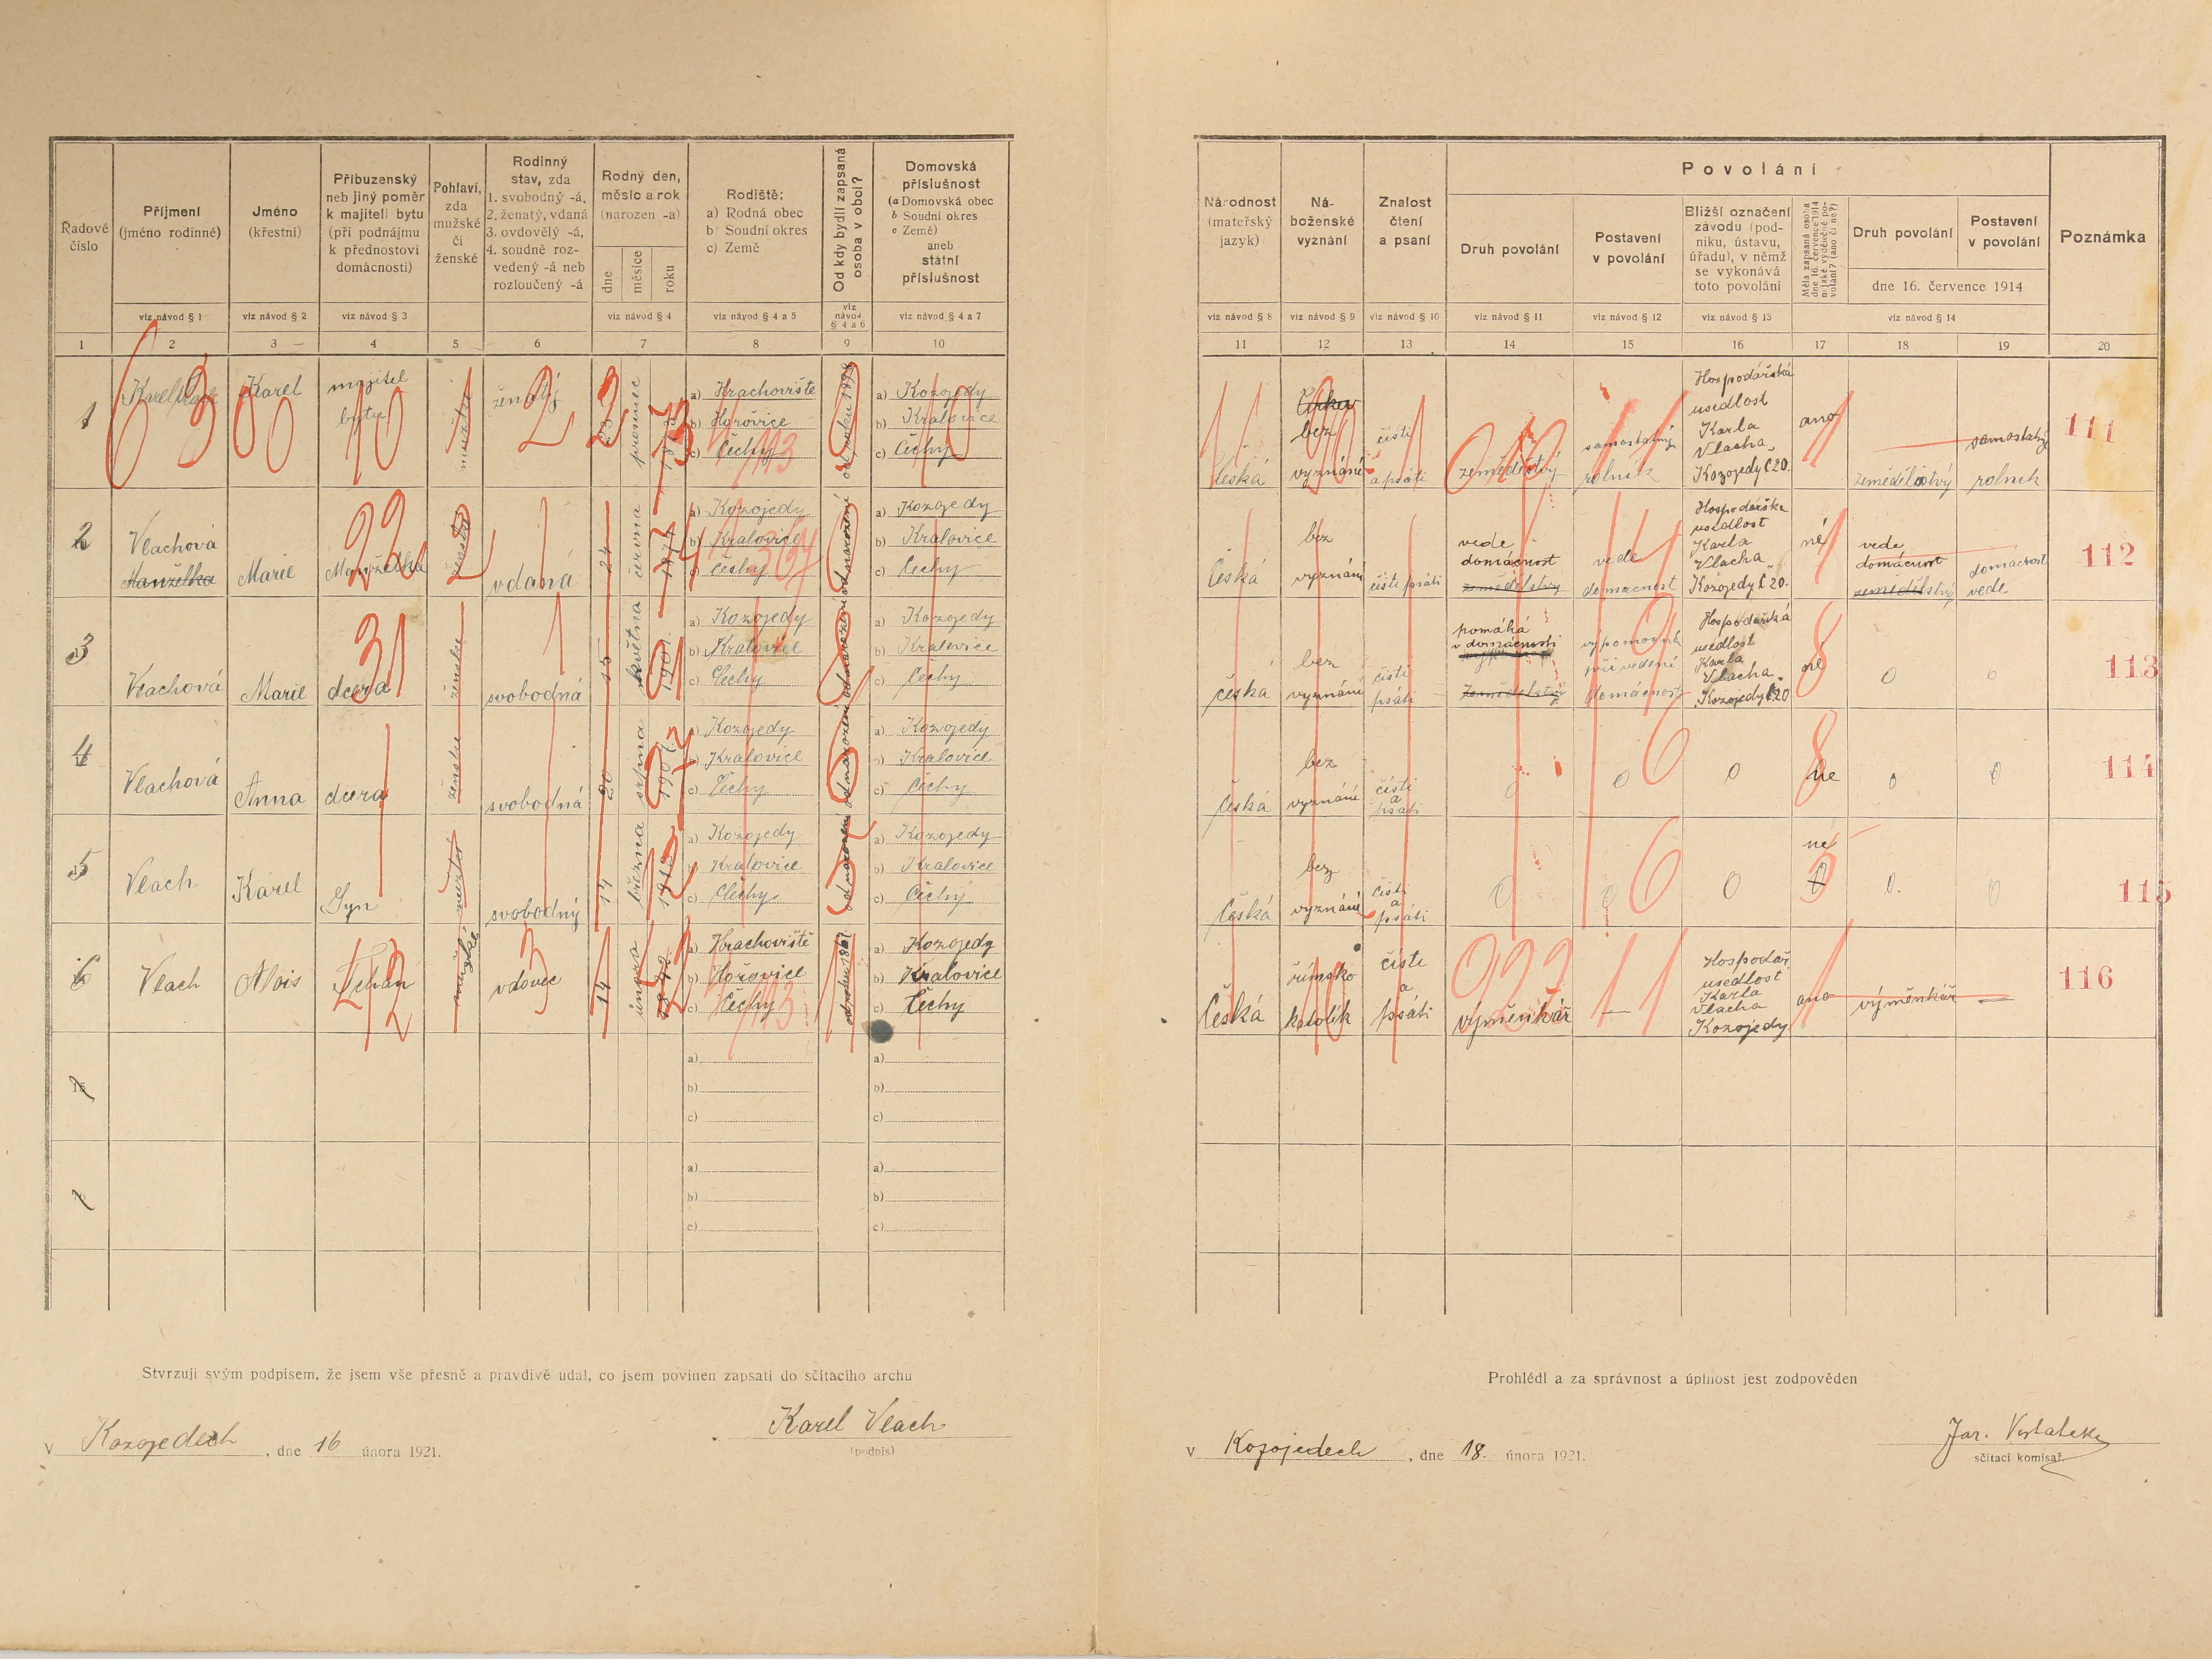 Řadové číslo
Příjmení (jméno rodinné)
Jméno (křestní)
Příbuzenský neb jiný poměr k majiteli bytu (při podnájmu k přednostovi domácnosti)
Pohlaví, zda mužské či ženské
Rodinný stav, zda 1. svobodný -á, 2. ženatý, vdaná 3. ovdovělý -á, 4. soudně rozvedený -á neb rozloučený -á
Rodný den, měsíc a rok (narozen -a)
dne
měsíce
roku
Rodiště: a) Rodná obec b) Soudní okres c) Země
Od kdy bydlí zapsaná osoba v obci?
Domovská příslušnost (a Domovská obec b Soudní okres c Země) aneb státní příslušnost
viz návod § 1
viz návod § 2
viz návod § 3
viz návod § 4
viz návod § 4 a 5
viz návod § 4 a 6
viz návod § 4 a 7
1 2 3 4 5 6 7 8 9 10
1 Karel Karel majitel bytu ženatý 23 prosince 1873
a) Hrachoviště
b) Hořovice
c) Čechy
a) Kozojedy
b) Kralovice
c) Čechy
2 Vlachová
Manželka Marie Manželka ženské vdaná 24 června 1874
a) Kozojedy
b) Kralovice
c) Čechy
od narození
a) Kozojedy
b) Kralovice
c) Čechy
3 Vlachová Marie dcera ženské svobodná 15 května 1901
a) Kozojedy
b) Kralovice
c) Čechy
od narození
a) Kozojedy
b) Kralovice
c) Čechy
4 Vlachová Anna dcera ženské svobodná 20 srpna 1907
a) Kozojedy
b) Kralovice
c) Čechy
od narození
a) Kozojedy
b) Kralovice
c) Čechy
5 Vlach Karel Syn svobodný 14 března
a) Kozojedy
b) Kralovice
c) Čechy
od narození
a) Kozojedy
b) Kralovice
c) Čechy
6 Vlach Alois mužské vdovec 14 února
a) Hrachoviště
b) Hořovice
c) Čechy
a) Kozojedy
b) Kralovice
c) Čechy
a)
b)
c)
a)
b)
c)
a)
b)
c)
a)
b)
c)
Stvrzuji svým podpisem, že jsem vše přesně a pravdivě udal, co jsem povinen zapsati do sčítacího archu
Karel Vlach
(podpis)
V Kozojedech, dne 16 února 1921.
Národnost (mateřský jazyk)
Náboženské vyznání
Znalost čtení a psaní
Povolání
Druh povolání
Postavení v povolání
Bližší označení závodu (podniku, ústavu, úřadu), v němž se vykonává toto povolání
Měla zapsaná osoba dne 16. července 1914 nějaké výdělečné povolání? (ano či ne?)
Druh povolání
Postavení v povolání
dne 16. července 1914
Poznámka
viz návod § 8
viz návod § 9
viz návod § 10
viz návod § 11
viz návod § 12
viz návod § 13
viz návod § 14
11 12 13 14 15 16 17 18 19 20
Česká
bez
vyznání
čísti
a psáti
samostatný
rolník
Hospodářská
usedlost
Karla
Vlacha
Kozojedy č 20.
ano
samostatný
rolník
111
Česká
bez
vyznání
čísti psáti
vede
domácnost
zemědělství
vede
domácnost
Hospodářska
usedlost
Karla
Vlacha
Kozojedy č 20.
né
vede
domácnost
domácnost
vede
112
česka
bez
vyznání
čísti
psáti
pomáhá
v domácnosti
zemědělství
při vedení
domácnosti
Hospodářská
usedlost
Karla
Vlacha
Kozojedy č 20
né
0
0
113
Česká
bez
vyznání
čísti
a
psáti
0
0
0
ne
0
0
114
Česká
bez
vyznání
čísti
a
psáti
0
0
0
né
0
0
115
Česká
římsko
katolík
číste
a
psáti
výměnkář
—
Hospodář
usedlost
Karla
Vlacha
Kozojedy
ano
výměnkář
—
116
Prohlédl a za správnost a úplnost jest zodpověden
V Kozojedech, dne 18. února 1921.
sčítací komisař.